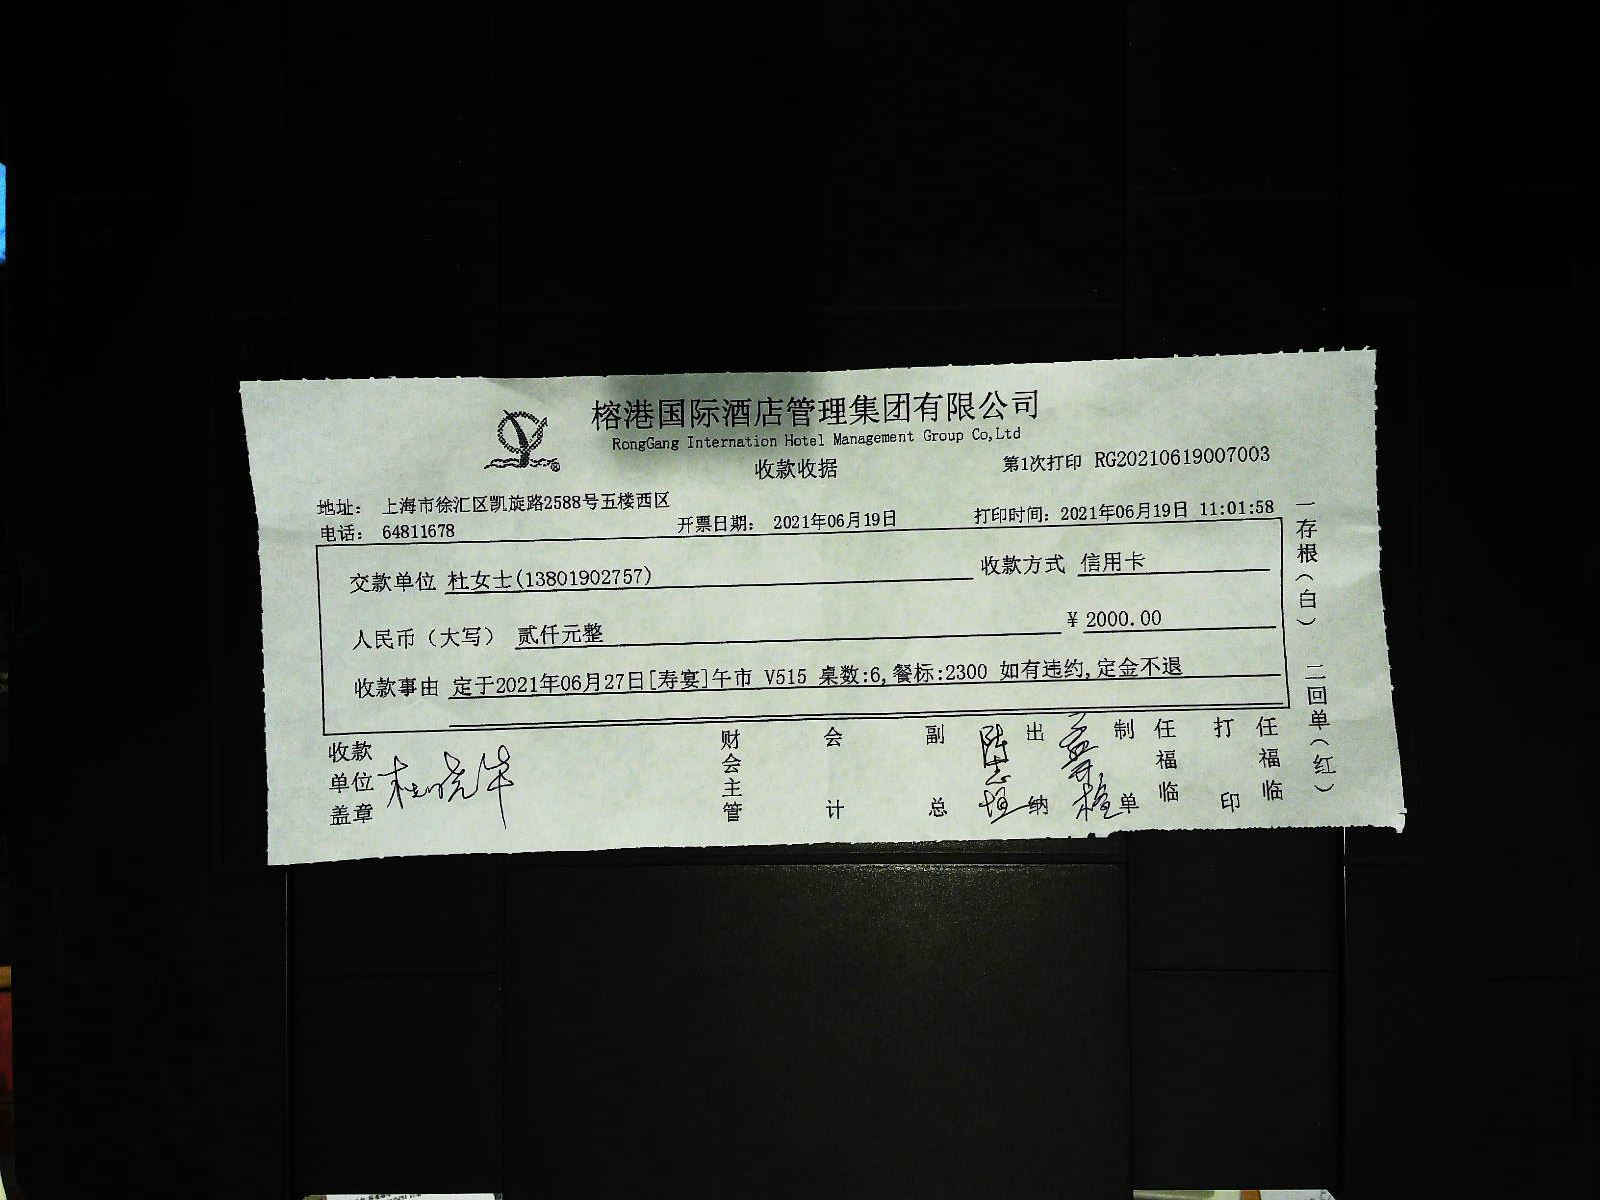 榕港国际酒店管理集团有限公司
RongGang Internation Hotel Management Group Co,Ltd
收款收据
第1次打印 RG20210619007003
地址: 上海市徐汇区凯旋路2588号五楼西区
电话: 64811678 开票日期: 2021年06月19日 打印时间: 2021年06月19日 11:01:58
交款单位 杜女士(13801902757) 收款方式 信用卡
人民币（大写） 贰仟元整 ¥ 2000.00
收款事由 定于2021年06月27日[寿宴]午市 V515 桌数:6,餐标:2300 如有违约,定金不退
收款单位盖章 杜晓华
财会主管
会计
副总
陈志恒
出纳
制单
任福临
打印
任福临
一存根(白) 二回单(红)